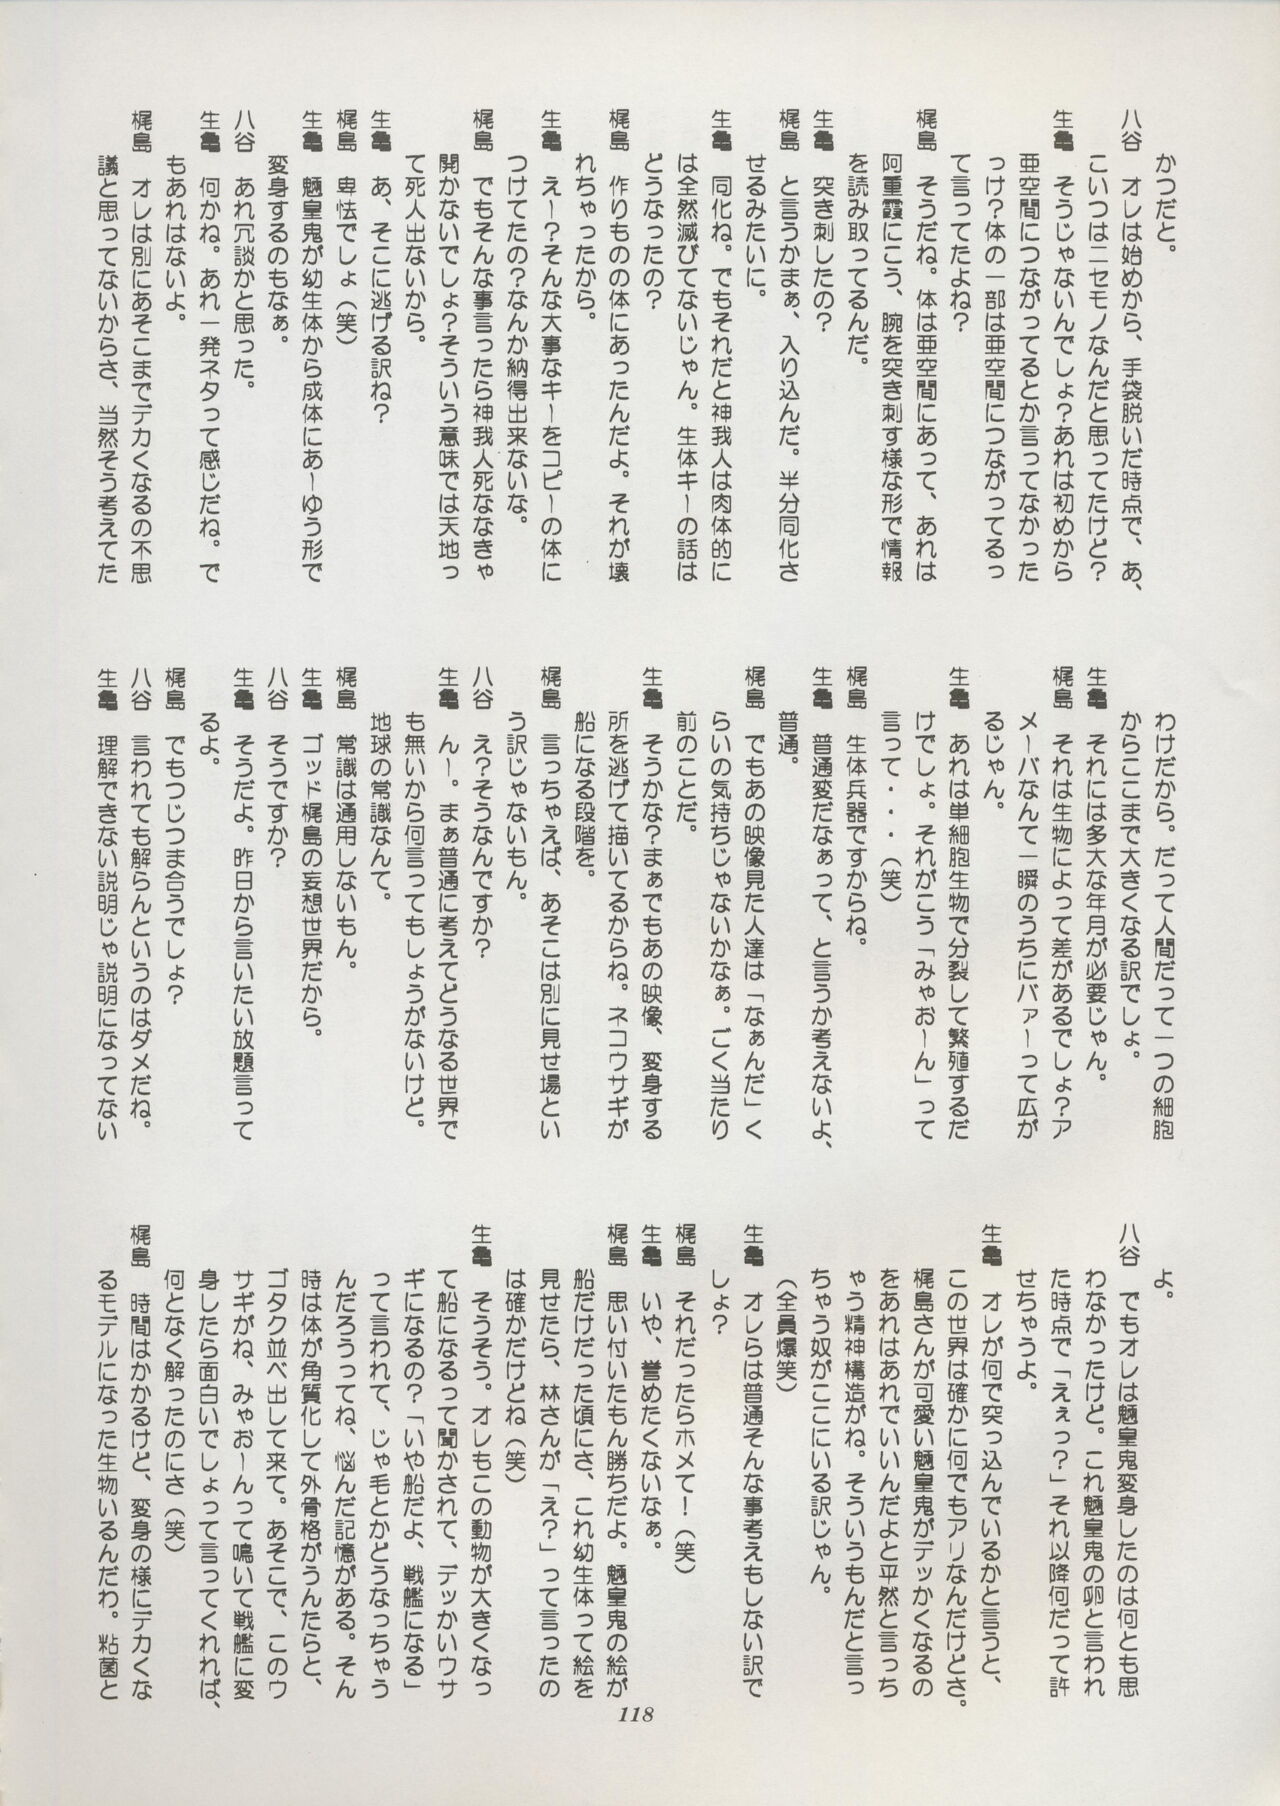 かつだと。
八谷　オレは始めから、手袋脱いだ時点で、あ、
こいつはニセモノなんだと思ってたけど？
生亀　そうじゃないんでしょ？あれは初めから
亜空間につながってるとか言ってなかった
っけ？体の一部は亜空間につながってるっ
て言ってたよね？
梶島　そうだね。体は亜空間にあって、あれは
阿重霞にこう、腕を突き刺す様な形で情報
を読み取ってるんだ。
生亀　突き刺したの？
梶島　と言うかまぁ、入り込んだ。半分同化さ
せるみたいに。
生亀　同化ね。でもそれだと神我人は肉体的に
は全然滅びてないじゃん。生体キーの話は
どうなったの？
梶島　作りものの体にあったんだよ。それが壊
れちゃったから。
生亀　え〜？そんな大事なキーをコピーの体に
つけてたの？なんか納得出来ないな。
梶島　でもそんな事言ったら神我人死ななきゃ
開かないでしょ？そういう意味では天地っ
て死人出ないから。
生亀　あ、そこに逃げる訳ね？
梶島　卑怯でしょ（笑）
生亀　魎皇鬼が幼生体から成体にあ〜ゆう形で
変身するのもなぁ。
八谷　あれ冗談かと思った。
生亀　何かね。あれ一発ネタって感じだね。で
もあれはないよ。
梶島　オレは別にあそこまでデカくなるの不思
議と思ってないからさ、当然そう考えてた
わけだから。だって人間だって一つの細胞
からここまで大きくなる訳でしょ。
生亀　それには多大な年月が必要じゃん。
梶島　それは生物によって差があるでしょ？ア
メーバなんて一瞬のうちにバァーって広が
るじゃん。
生亀　あれは単細胞生物で分裂して繁殖するだ
けでしょ。それがこう「みゃお〜ん」って
言って・・・（笑）
梶島　生体兵器ですからね。
生亀　普通変だなぁって、と言うか考えないよ、
普通。
梶島　でもあの映像見た人達は「なぁんだ」く
らいの気持ちじゃないかなぁ。ごく当たり
前のことだ。
生亀　そうかな？まぁでもあの映像、変身する
所を逃げて描いてるからね。ネコウサギが
船になる段階を。
梶島　言っちゃえば、あそこは別に見せ場とい
う訳じゃないもん。
八谷　え？そうなんですか？
生亀　ん〜。まぁ普通に考えてどうなる世界で
も無いから何言ってもしょうがないけど。
地球の常識なんて。
梶島　常識は通用しないもん。
生亀　ゴッド梶島の妄想世界だから。
八谷　そうですか？
生亀　そうだよ。昨日から言いたい放題言って
るよ。
梶島　でもつじつま合うでしょ？
八谷　言われても解らんというのはダメだね。
生亀　理解できない説明じゃ説明になってない
よ。
八谷　でもオレは魎皇鬼変身したのは何とも思
わなかったけど。これ魎皇鬼の卵と言われ
た時点で「えぇっ？」それ以降何だって許
せちゃうよ。
生亀　オレが何で突っ込んでいるかと言うと、
この世界は確かに何でもアリなんだけどさ。
梶島さんが可愛い魎皇鬼がデッかくなるの
をあれはあれでいいんだよと平然と言っち
ゃう精神構造がね。そういうもんだと言っ
ちゃう奴がここにいる訳じゃん。
（全員爆笑）
生亀　オレらは普通そんな事考えもしない訳で
しょ？
梶島　それだったらホメて！（笑）
生亀　いや、誉めたくないなぁ。
梶島　思い付いたもん勝ちだよ。魎皇鬼の絵が
船だけだった頃にさ、これ幼生体って絵を
見せたら、林さんが「え？」って言ったの
は確かだけどね（笑）
生亀　そうそう。オレもこの動物が大きくなっ
て船になるって聞かされて、デッかいウサ
ギになるの？「いや船だよ、戦艦になる」
って言われて、じゃ毛とかどうなっちゃう
んだろうってね、悩んだ記憶がある。そん
時は体が角質化して外骨格がうんたらと、
ゴタク並べ出して来て。あそこで、このウ
サギがね、みゃお〜んって鳴いて戦艦に変
身したら面白いでしょって言ってくれれば、
何となく解ったのにさ（笑）
梶島　時間はかかるけど、変身の様にデカくな
るモデルになった生物いるんだわ。粘菌と
118